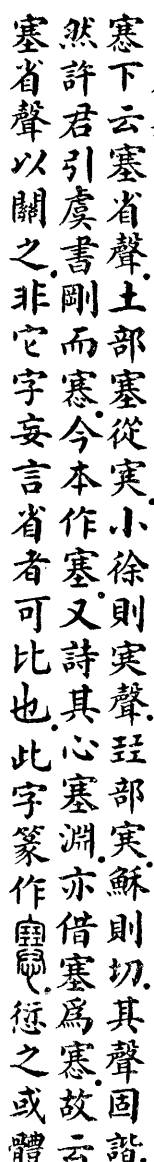 㥶下云塞省聲。土部塞從㝩。小徐則㝩聲。㠭部㝩穌則切。其聲固諧
然許君引虞書剛而㥶。今本作塞。又詩其心塞淵。亦借塞爲㥶。故云
塞省聲以關之。非它字妄言省者可比也。此字篆作。愆之或體